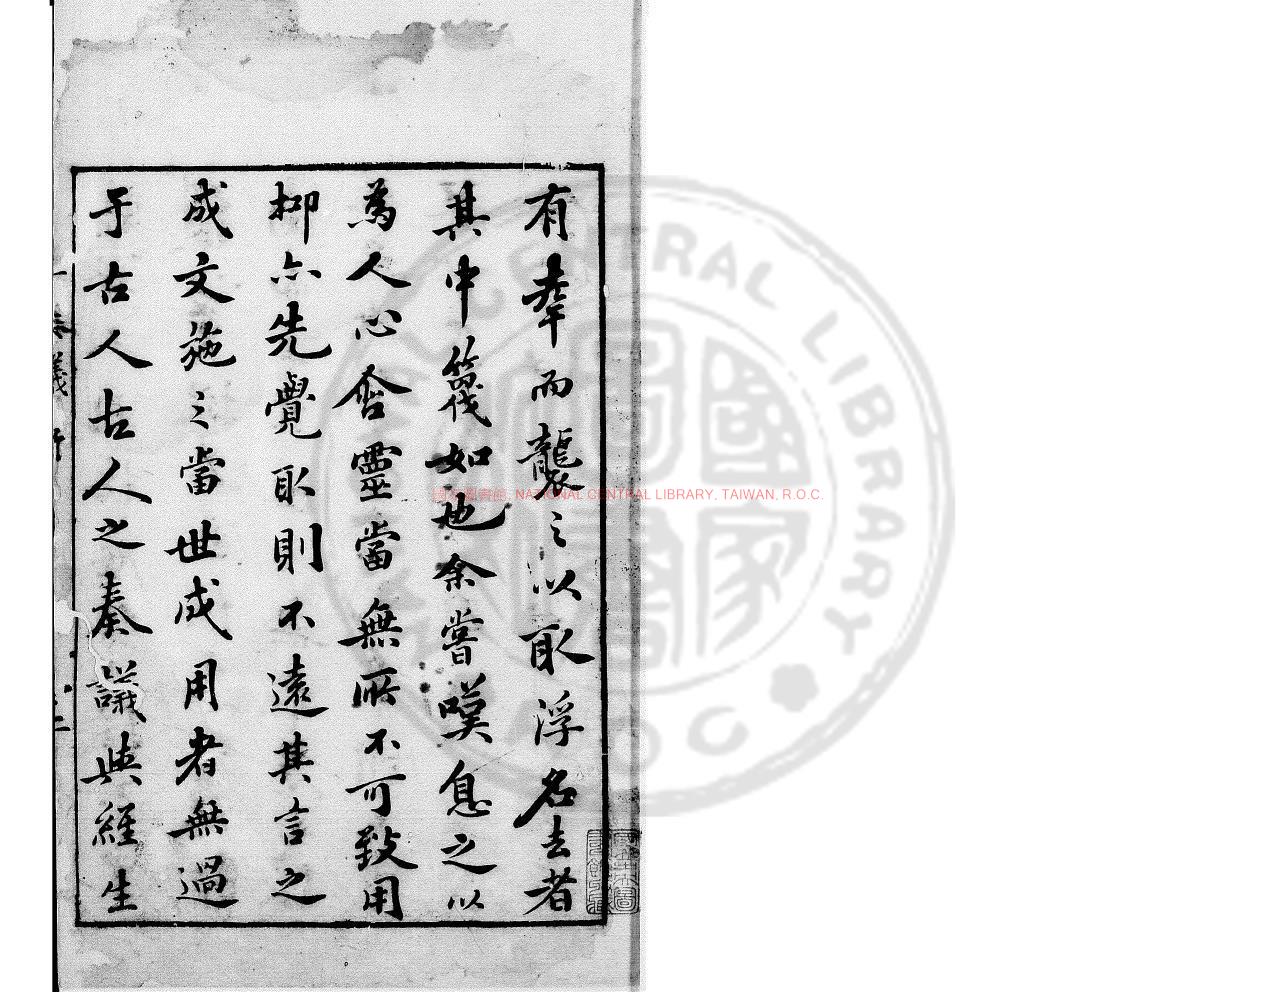 有牽而襲之以取浮名去者
其中篾如也余嘗嘆息之以
為人心含靈當無所不可致用
抑亦先覺取則不遠其言之
成文施之當世成用者無過
于古人古人之奏議與經生
國家圖書館, NATIONAL CENTRAL LIBRARY, TAIWAN, R.O.C.